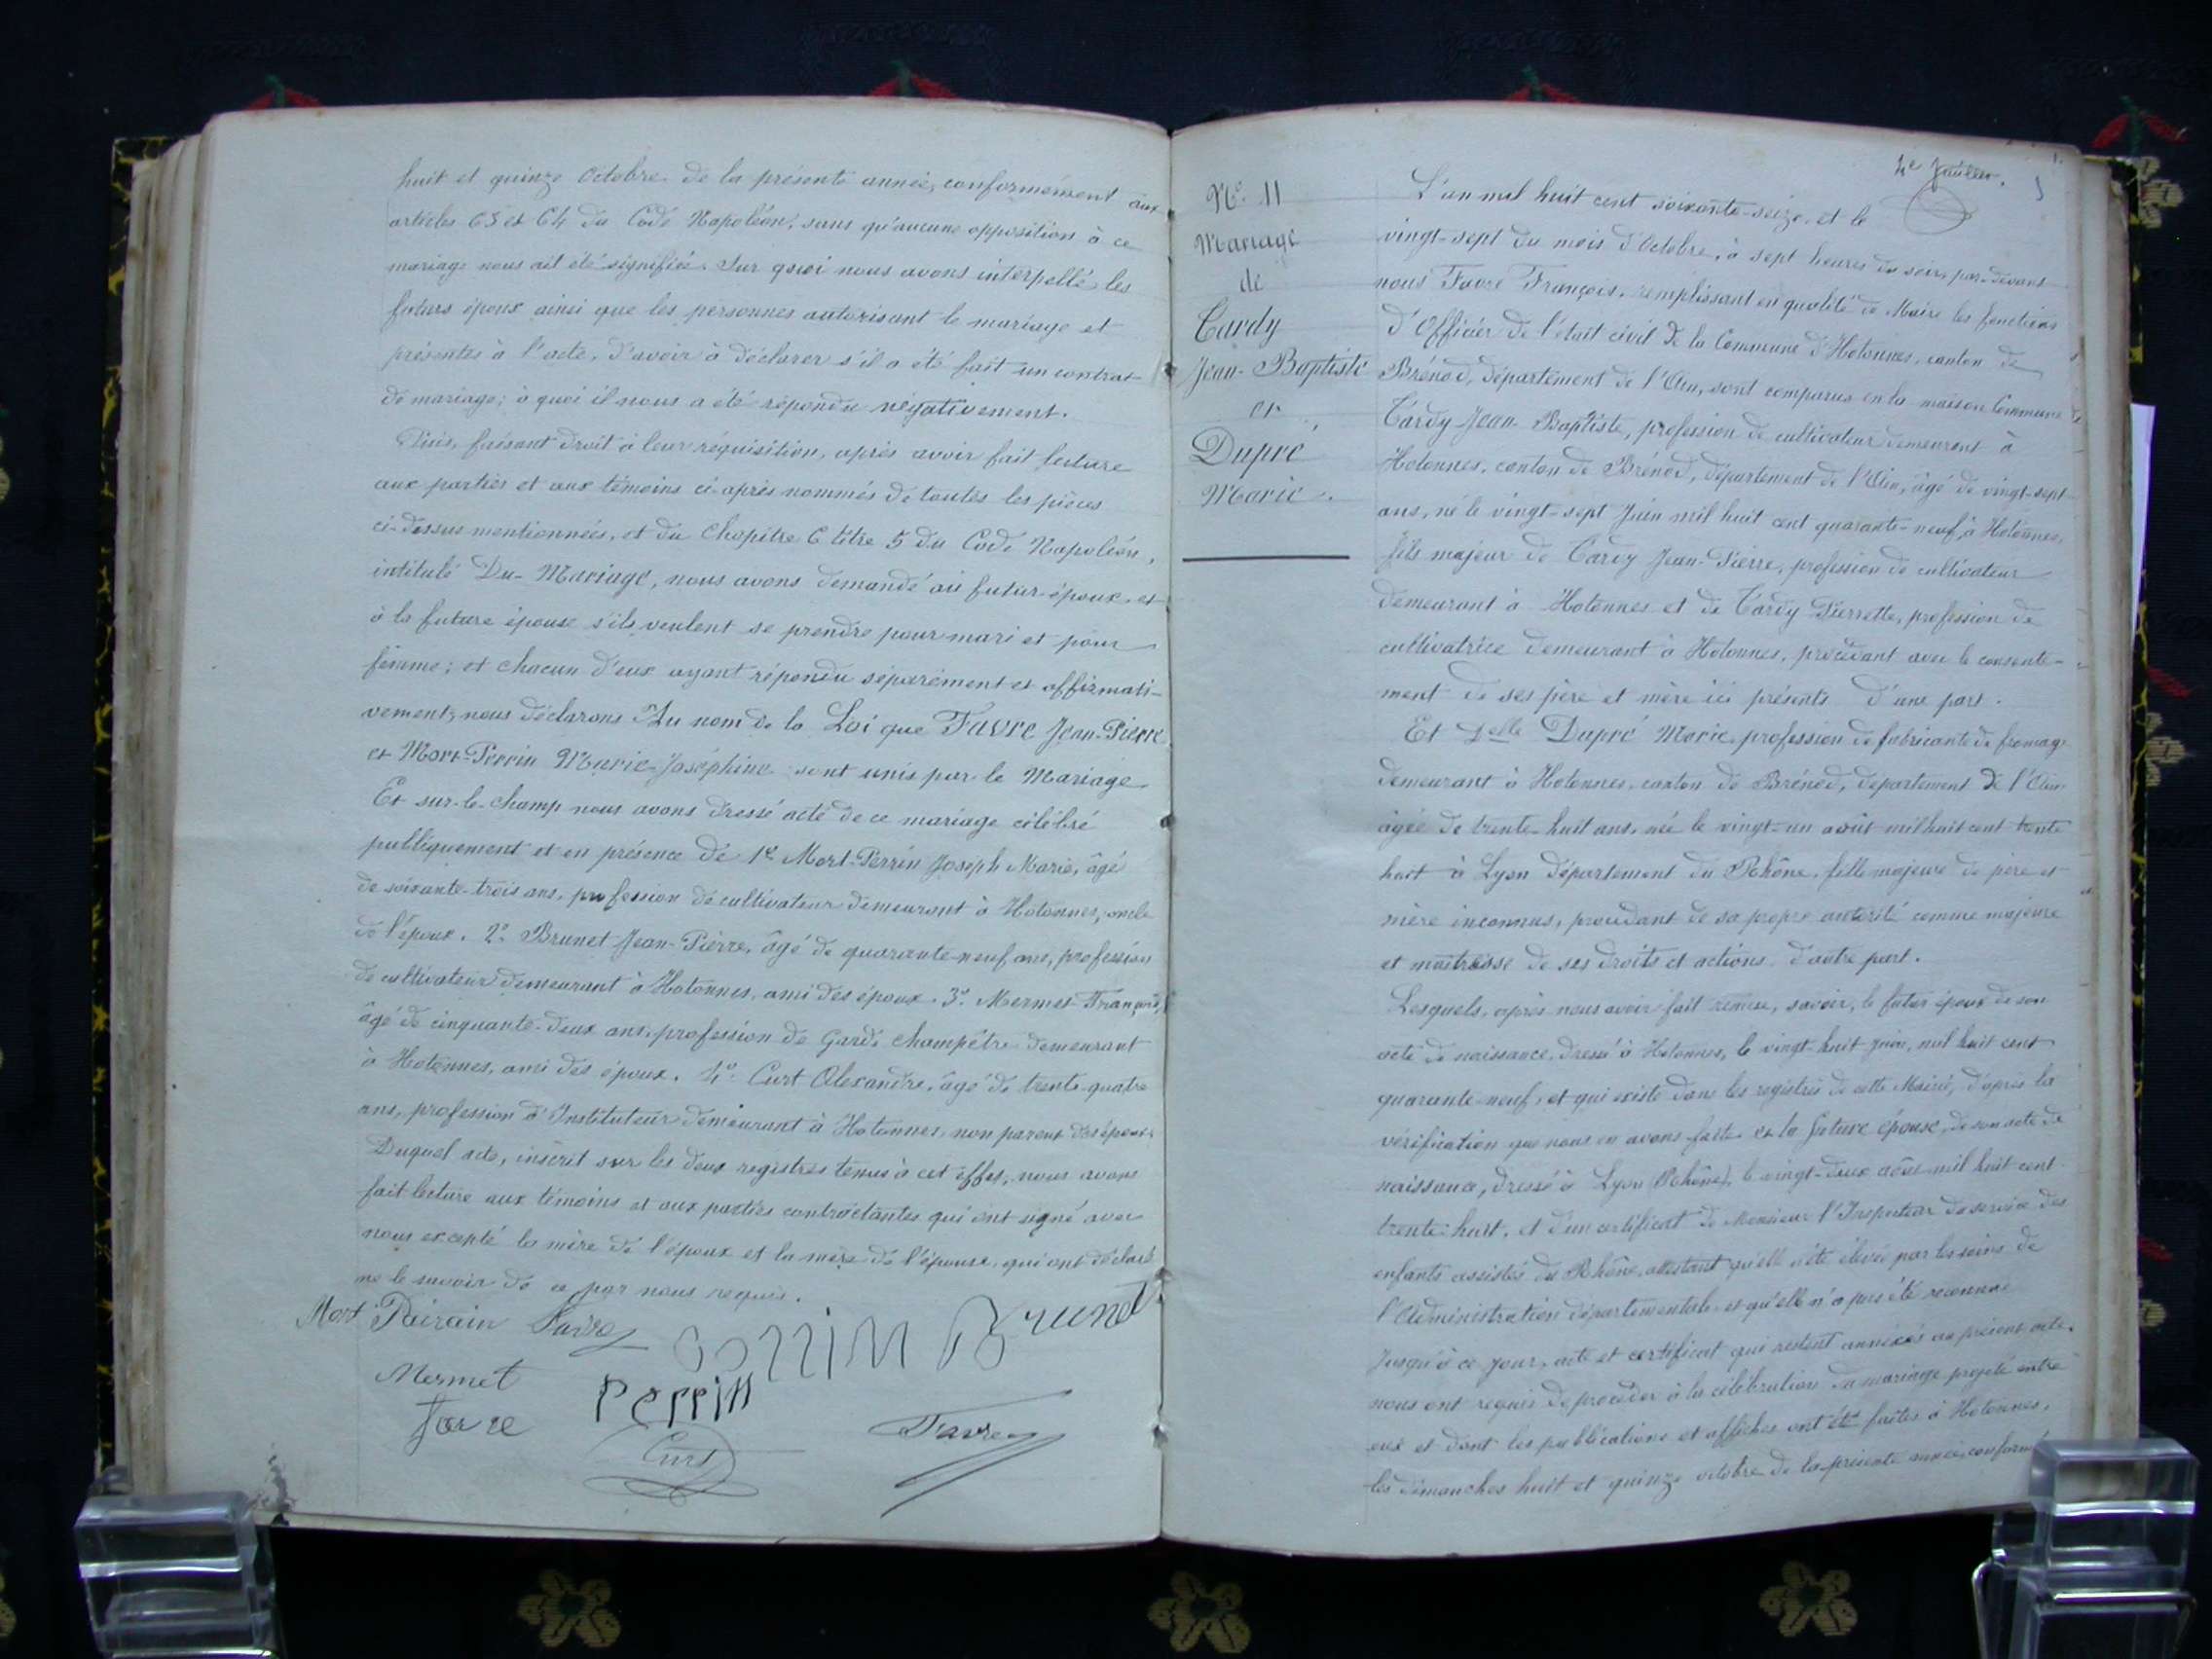 huit et quinze Octobre de la présente année, conformément aux
articles 63 et 64 du Code Napoléon, sans qu'aucune opposition à ce
mariage nous ait été signifiée. Sur quoi nous avons interpellé les
futurs époux ainsi que les personnes autorisant le mariage et
présentes à l'acte, d'avoir à déclarer s'il a été fait un contrat
de mariage; à quoi il nous a été répondu négativement.
Puis, faisant droit à leur réquisition, après avoir fait lecture
aux parties et aux témoins ci-après nommés de toutes les pièces
ci-dessus mentionnées, et du Chapitre 6 titre 5 du Code Napoléon,
intitulé Du Mariage, nous avons demandé au futur époux et
à la future épouse s'ils veulent se prendre pour mari et pour
femme; et chacun d'eux ayant répondu séparément et affirmati-
vement, nous déclarons Au nom de la Loi que Favre Jean-Pierre
et Mort-Perrin Marie-Joséphine sont unis par le Mariage
Et sur-le-champ nous avons dressé acte de ce mariage célébré
publiquement et en présence de 1º Mort-Perrin Joseph Marie, âgé
de soixante-trois ans, profession de cultivateur demeurant à Hotonnes, oncle
de l'époux. 2º Brunet Jean-Pierre, âgé de quarante-neuf ans, profession
de cultivateur demeurant à Hotonnes, ami des époux. 3º Mermet François,
âgé de cinquante-deux ans, profession de Garde champêtre demeurant
à Hotonnes, ami des époux. 4º Curt Alexandre, âgé de trente-quatre
ans, profession d'Instituteur demeurant à Hotonnes, non parent des époux
Duquel acte, inscrit sur les deux registres tenus à cet effet, nous avons
fait lecture aux témoins et aux parties contractantes qui ont signé avec
nous excepté la mère de l'époux et la mère de l'épouse, qui ont déclaré
ne le savoir de ce par nous requis.
Mort Perrin Favre Perrin Brunet
Mermet Perrin
favre Curt Favre
4e feuillet.
Nº 11
Mariage
de
Tardy
Jean-Baptiste
et
Dupré
Marie.
L'an mil huit cent soixante-seize et le
vingt-sept du mois d'Octobre, à sept heures du soir, par-devant
nous Favre François, remplissant en qualité de Maire les fonctions
d'Officier de l'état civil de la Commune d'Hotonnes, canton de
Brénod, département de l'Ain, sont comparus en la maison Commune
Tardy Jean-Baptiste, profession de cultivateur demeurant à
Hotonnes, canton de Brénod, département de l'Ain, âgé de vingt-sept
ans, né le vingt-sept Juin mil huit cent quarante-neuf, à Hotonnes,
fils majeur de Tardy Jean-Pierre, profession de cultivateur
demeurant à Hotonnes et de Tardy Pierrette, profession de
cultivatrice demeurant à Hotonnes, procédant avec le consente-
ment de ses père et mère ici présents d'une part.
Et Delle Dupré Marie, profession de fabricante de fromage
demeurant à Hotonnes, canton de Brénod, département de l'Ain
âgée de trente-huit ans, née le vingt-un août mil huit cent trente
huit à Lyon département du Rhône, fille majeure de père et
mère inconnus, procédant de sa propre autorité comme majeure
et maîtresse de ses droits et actions d'autre part.
Lesquels, après nous avoir fait remise, savoir, le futur époux de son
acte de naissance, dressé à Hotonnes, le vingt-huit Juin, mil huit cent
quarante-neuf, et qui existe dans les registres de cette Mairie, d'après la
vérification que nous en avons faite et la future épouse, de son acte de
naissance, dressé à Lyon (Rhône), le vingt-deux août mil huit cent
trente-huit, et d'un certificat de Monsieur l'Inspecteur du service des
enfants assistés du Rhône, attestant qu'elle a été élevée par les soins de
l'Administration départementale et qu'elle n'a pas été reconnue
jusqu'à ce jour, acte et certificat qui restent annexés au présent acte.
nous ont requis de procéder à la célébration du mariage projeté entre
eux et dont les publications et affiches ont été faites à Hotonnes,
les dimanches huit et quinze octobre de la présente année, conformé